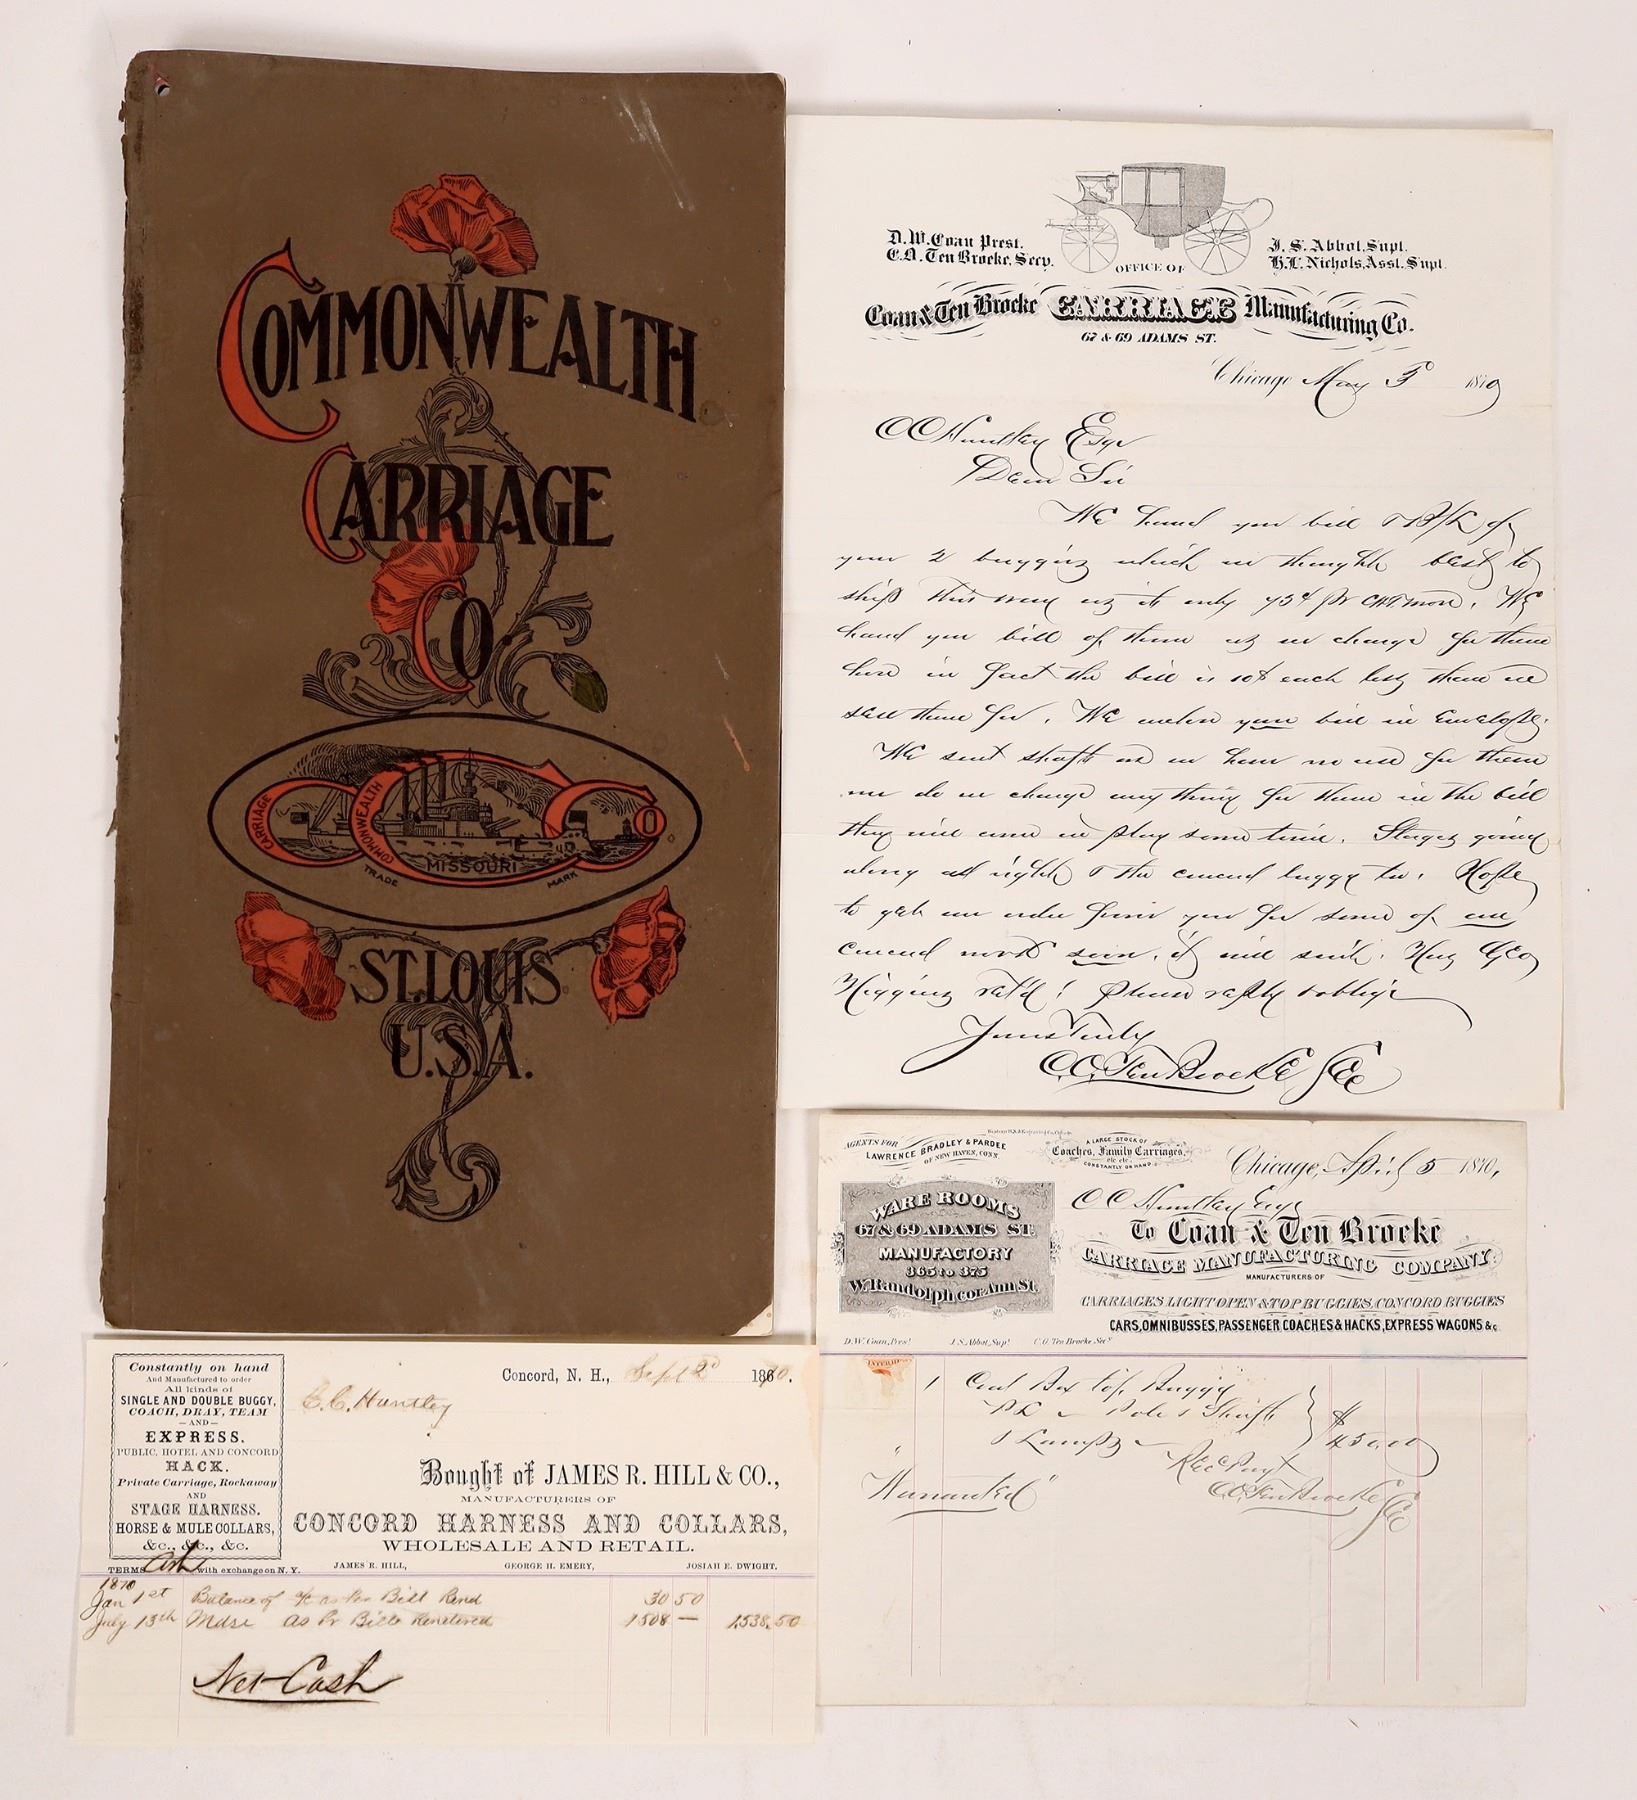 COMMONWEALTH
CARRIAGE
CO.
CARRIAGE COMMONWEALTH CO
MISSOURI
TRADE MARK
ST. LOUIS
U.S.A.
D. W. Coan Prest.
C. O. Ten Broeke, Secy.
J. S. Abbot, Supt.
H. L. Nichols, Asst. Supt.
OFFICE OF
Coan & Ten Broeke CARRIAGE Manufacturing Co.
67 & 69 ADAMS ST.
Chicago May 1870
C C Huntley Esqr
Dear Sir
We hand you bill of
your 2 buggies which we thought best to
ship this way as its only 75¢ pr cwt more. We
hand you bill of them as we charge for them
here in fact the bill is 10$ each less than we
sell them for. We enclose your bill in Envelope.
We sent shafts as we have no use for them
nor do we charge anything for them in the bill
they will come in play some time. Stages going
along all right & the buggy too. Hope
to get an order from you for some of our
work soon, if will suit. Has Geo
Higgins ret'd! Please reply & oblige
Yours Truly
C. O. Ten Broeke Sec
AGENTS FOR
LAWRENCE BRADLEY & PARDEE
OF NEW HAVEN, CONN.
A LARGE STOCK OF
Coaches, Family Carriages,
etc etc
CONSTANTLY ON HAND
Chicago, April 5 1870,
C C Huntley Esq
WARE ROOMS
67 & 69 ADAMS ST.
MANUFACTORY
365 to 375
W. Randolph cor. Ann St.
To Coan & Ten Broeke
CARRIAGE MANUFACTURING COMPANY
MANUFACTURERS OF
CARRIAGES LIGHT OPEN & TOP BUGGIES, CONCORD BUGGIES
CARS, OMNIBUSSES, PASSENGER COACHES & HACKS, EXPRESS WAGONS &c.
D. W. Coan, Prest. J. S. Abbot, Supt. C. O. Ten Broeke Secy
1 Coal Box top Buggy
Pole & Shafts
& Lamps $450.00
Rec Payt
Warranted C. O. Ten Broeke Sec
Constantly on hand
And Manufactured to order
All kinds of
SINGLE AND DOUBLE BUGGY,
COACH, DRAY, TEAM
—AND—
EXPRESS.
PUBLIC, HOTEL AND CONCORD
HACK.
Private Carriage, Rockaway
AND
STAGE HARNESS.
HORSE & MULE COLLARS,
&c., &c., &c.
TERMS Cash with exchange on N. Y.
Concord, N. H., Sept 2d 1870.
C. C. Huntley
Bought of JAMES R. HILL & CO.,
MANUFACTURERS OF
CONCORD HARNESS AND COLLARS,
WHOLESALE AND RETAIL.
JAMES R. HILL, GEORGE H. EMERY, JOSIAH E. DWIGHT.
1870
Jan 1st Balance of a/c as Per Bill Rend 30 50
July 13th Mdse as Pr Bills Rendered 1508 — 1,538.50
Net Cash